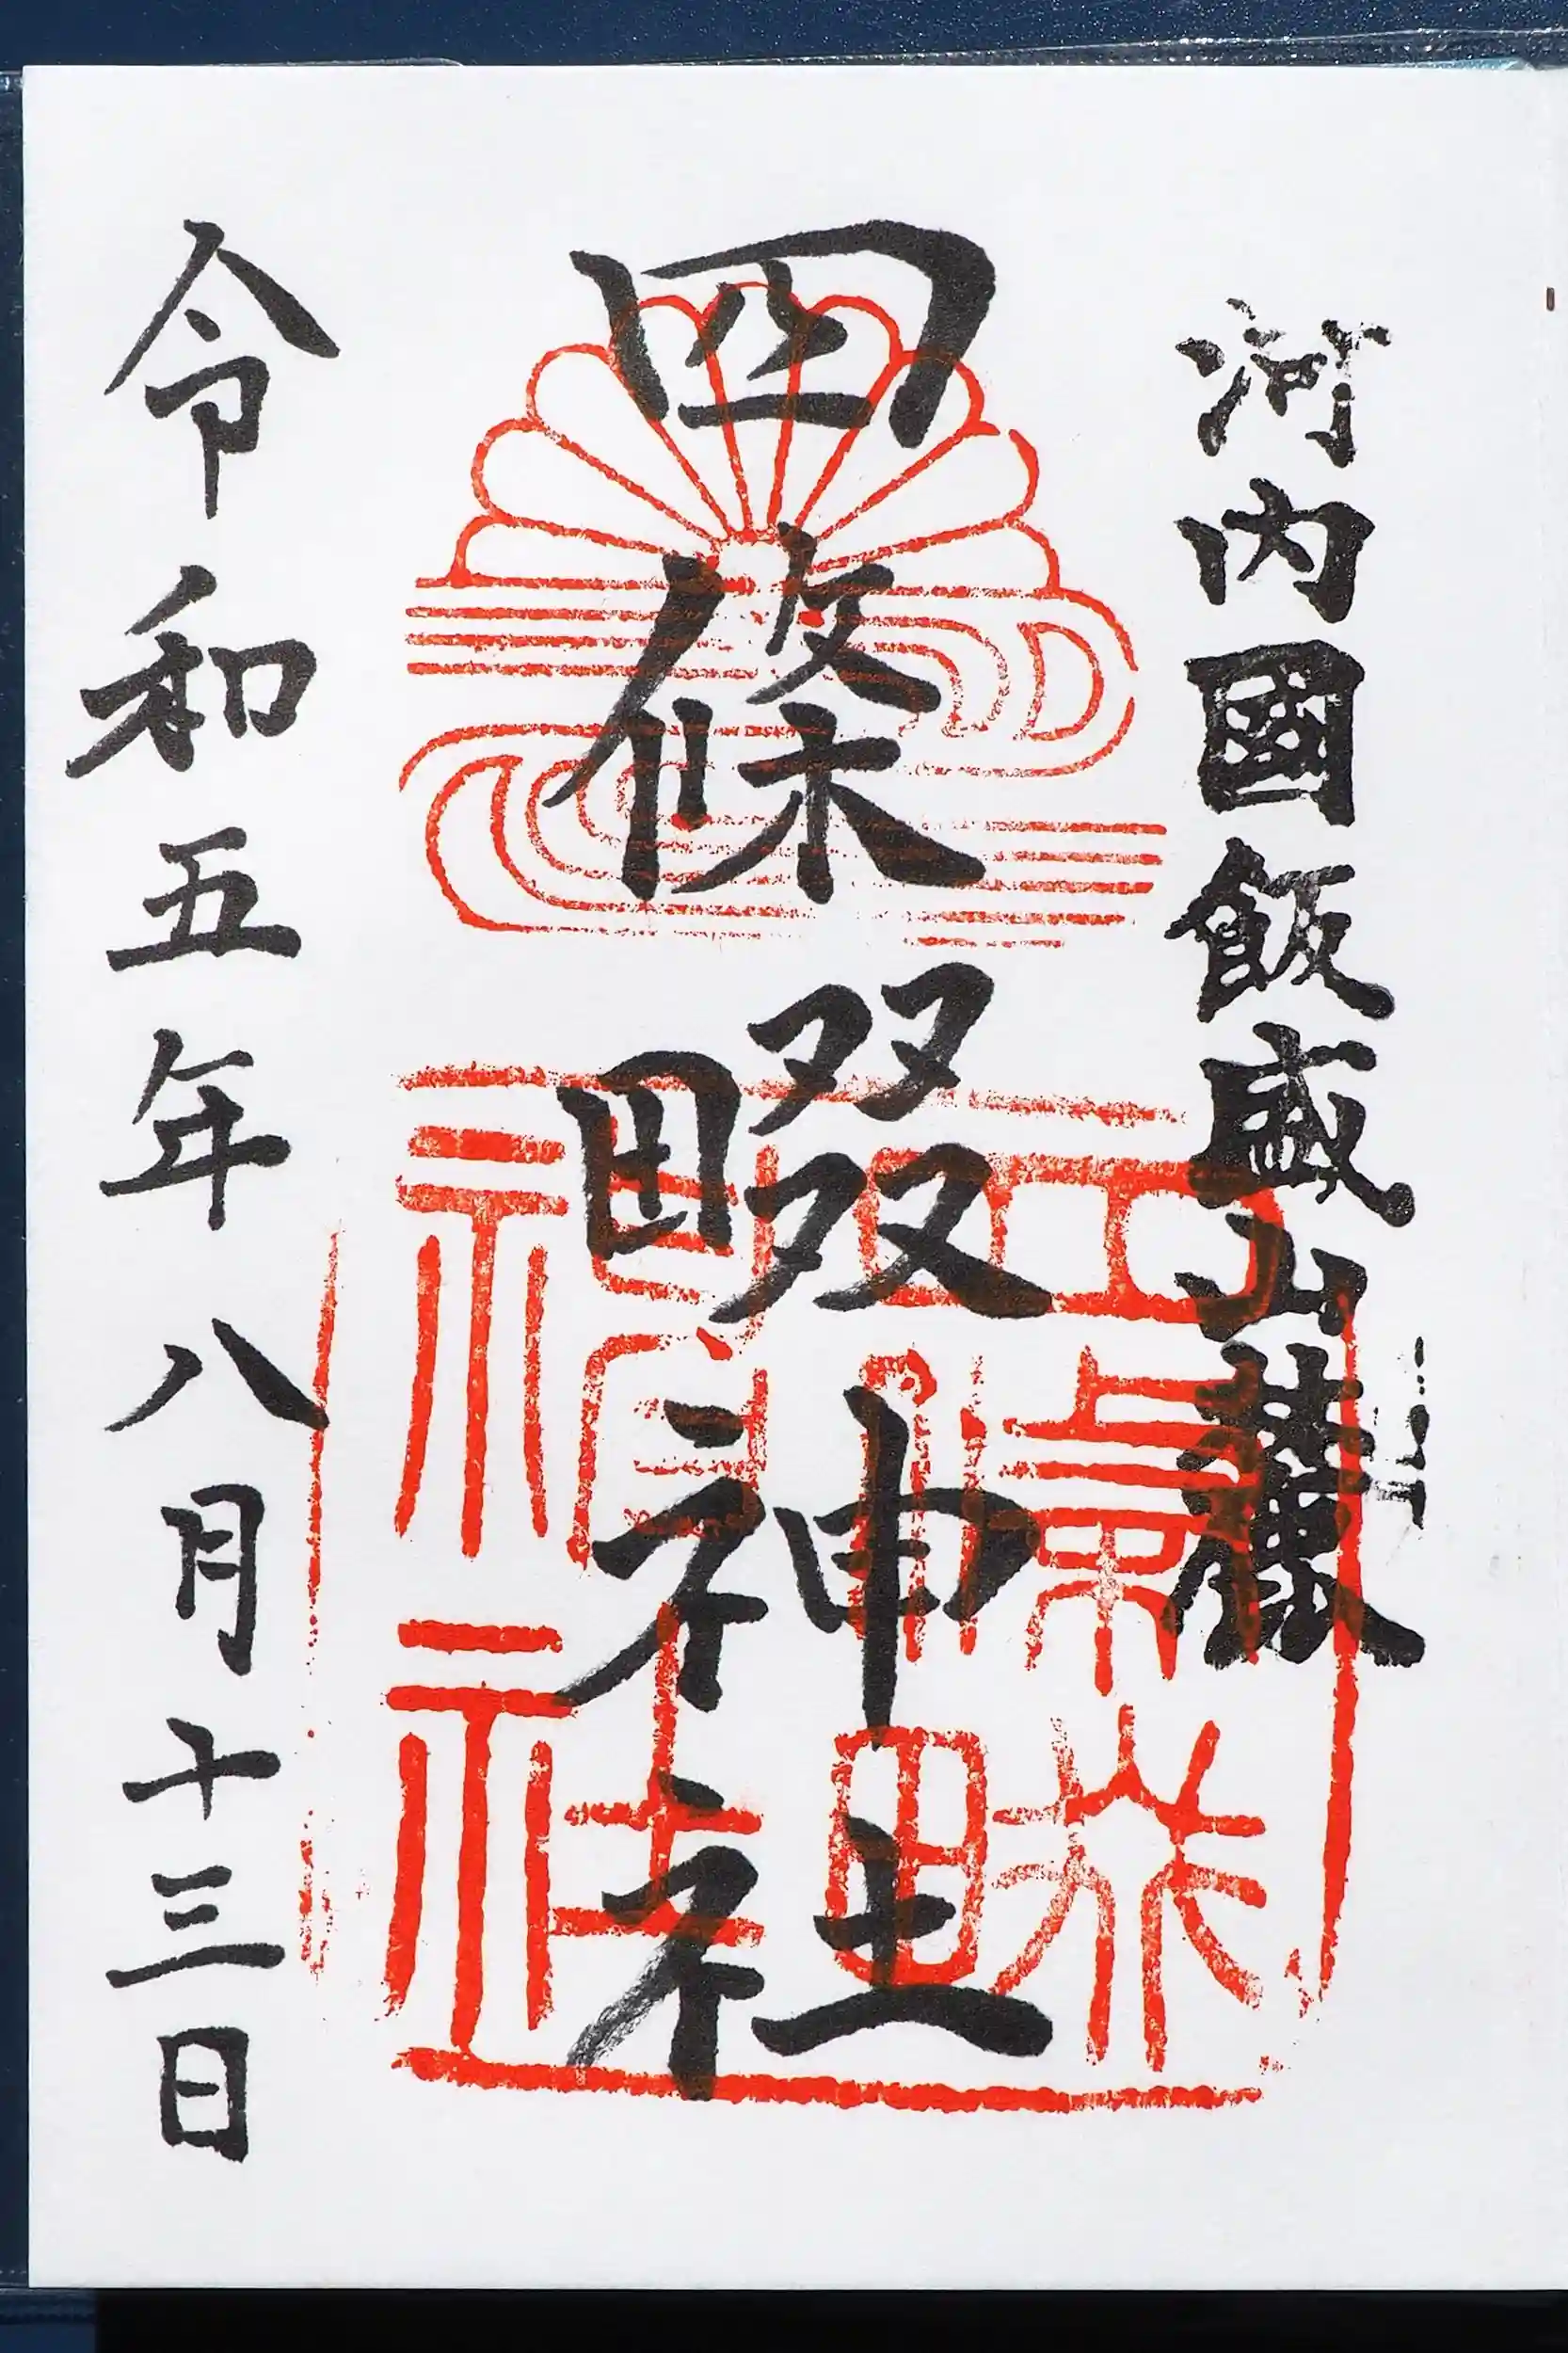 河内國飯盛山麓
四條畷神社
令和五年八月十三日
四條畷神社